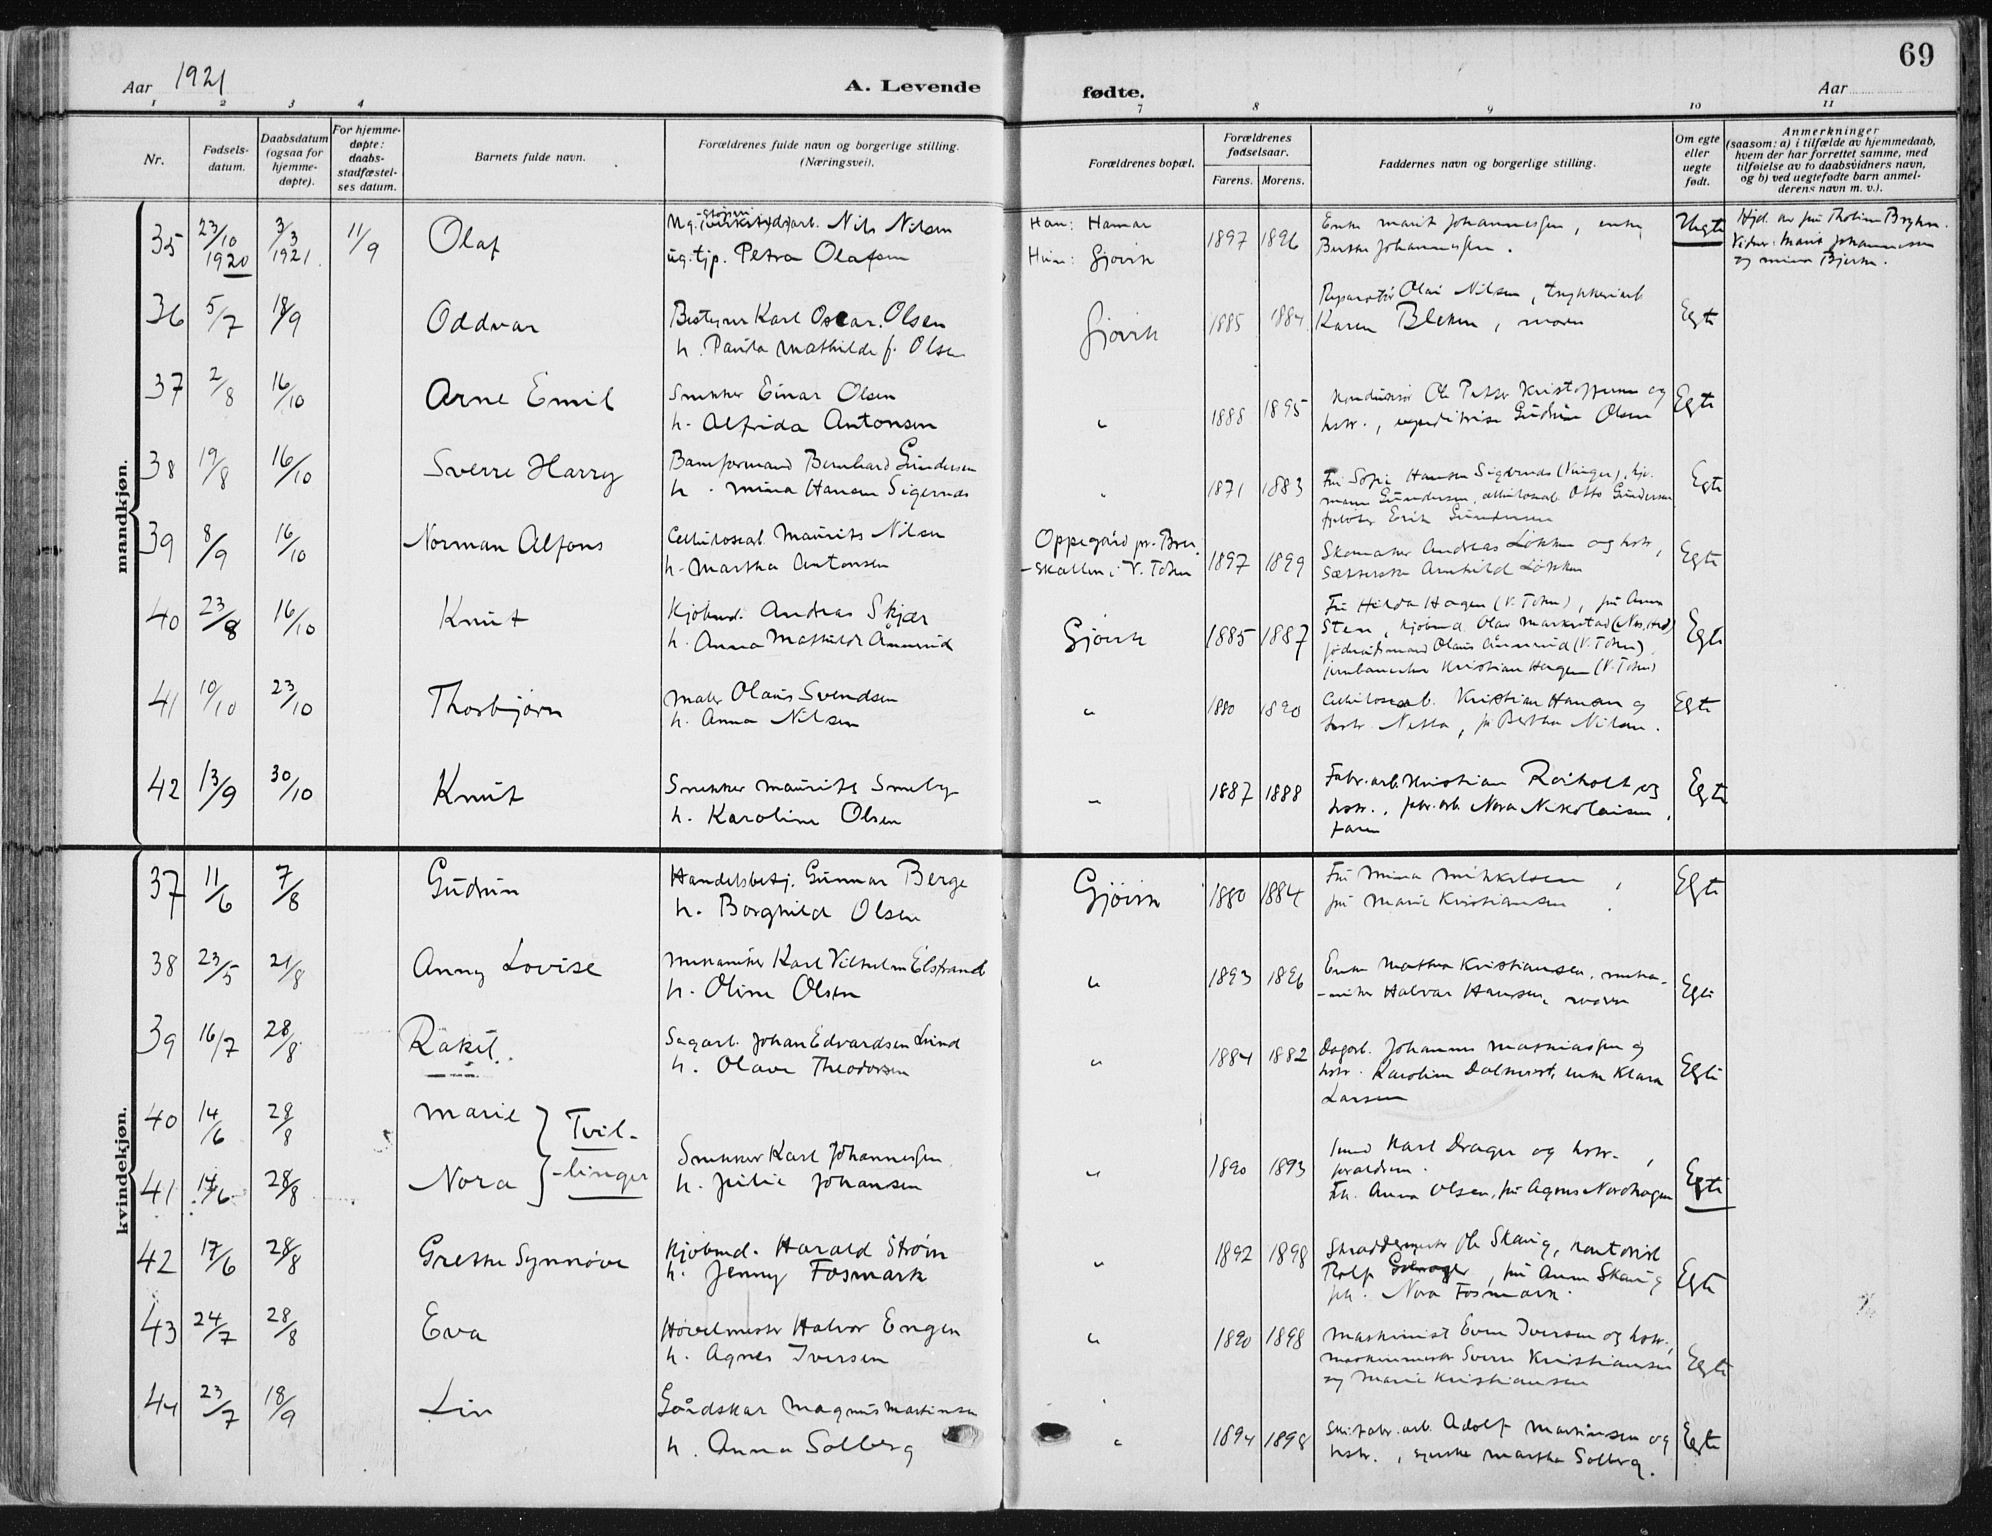 69
Aar 1921
A. Levende
fødte.
Aar
1 2 3 4
7 8 9 10 11
Nr.
Fødsels-
datum.
Daabsdatum
(ogsaa for
hjemme-
døpte).
For hjemme-
døpte:
daabs-
stadfæstel-
ses datum.
Barnets fulde navn.
Forældrenes fulde navn og borgerlige stilling.
(Næringsvei).
Forældrenes bopæl.
Forældrenes
fødselsaar.
Farens. Morens.
Faddernes navn og borgerlige stilling.
Om egte
eller
uegte
født.
Anmerkninger
(saasom: a) i tilfælde av hjemmedaab,
hvem der har forrettet samme, med
tilføielse av to daabsvidners navn,
og b) ved uegtefødte barn anmel-
derens navn m. v.).
mandkjøn.
35 23/10 1920 3/3 1921. 11/9 Olaf
Nils Nilsen
ug. tjp. Petra Olafsen
Han: Hamar
Hun: Gjøvik
1897 1896
Enke Marit Johannessen, enke
Berthe Johannessen.
Uegte
36 5/7 18/9 Oddvar
Bestyrer Karl Oscar Olsen
h. Paula Mathilde f. Olsen
Gjøvik
1885 1884
Reparatør Olai Nilsen,
Karen Bleken, moren
Egte
37 2/8 16/10 Arne Emil
Snekker Einar Olsen
h. Alfrida Antonsen
"
1888 1895
Konduktør Ole Petter Kristoffersen og
hstr., expeditrise Gudrun Olsen
Egte
38 19/8 16/10 Sverre Harry
Baneformand Bernhard Gundersen
h. Mina Hansen Sigernes
"
1871 1883
Fru Sofie Hansen Sigernes (Vinger),
Gundersen, cellulosearb. Otto Gundersen
Erik Gundersen
Egte
39 8/9 16/10 Norman Alfons
Cellulosearb. Maurits Nilsen
h. Martha Antonsen
Oppegård pr. Bre-
-skallen i V. Toten
1897 1899
Skomaker Andreas Løkken og hstr,
Arnhild Løkken
Egte
40 23/8 16/10 Knut
Kjøbmd. Andreas Skjær
h. Anna Mathilde Ånnerud
Gjøvik
1885 1887
Fru Hilda Hagen (V. Toten), fru Anna
Sten, kjøbmd. Olav (Nes, Hed)
Olaus Ånnerud (V. Toten),
Kristian Hagen (V. Toten)
Egte
41 10/10 23/10 Thorbjørn
Maler Olaus Svendsen
h. Anna Nilsen
"
1880 1890
Cellulosearb. Kristian Hansen og
hstr. Netta, fr Bertha Nilsen.
Egte
42 13/9 30/10 Knut
Snekker Maurits Smeby
h. Karoline Olsen
"
1887 1888
Fabr.arb. Kristian Roiholt og
hstr., fabr.arb. Nora Nikolaisen,
faren
Egte
kvindekjøn.
37 11/6 7/8 Gudrun
Handelsbetj. Gunnar Berge
h. Borghild Olsen
Gjøvik
1880 1884
Fru Mina Mikkelsen,
fru Marie Kristiansen
Egte
38 23/5 21/8 Anny Lovise
Mekaniker Karl Vilhelm Elstrand
h. Oline Olsen
"
1893 1896
Enke Mathea Kristiansen, meka-
-niker Halvar Hansen, moren
Egte
39 16/7 28/8 Rakel.
Sagarb. Johan Edvardsen Lund
h. Olave Theodorsen
"
1884 1882
Dagarb. Johannes Mathiassen og
hstr. Karoline Dalkvist, enke Klara
Larsen
Egte
40 14/6 28/8 Marie
Tvil-
41 14/6 28/8 Nora
-linger
Snekker Karl Johannessen
h. Julie Johansen
"
1890 1893
Karl Drager og hstr.,
foreldrene.
Frk. Anna Olsen, fru Agnes Nordhagen
Egte
42 17/6 28/8 Grethe Synnøve
Kjøbmd. Harald Strøm
h. Jenny Fosmark
"
1892 1898
Skreddermester Ole Skaug, kontorist
Rolf, fru Anna Skaug
frk. Nora Fosmark.
Egte
43 24/7 28/8 Eva
Høvelmester Halvor Engen
h. Agnes Iversen
"
1890 1898
Maskinist Even Iversen og hstr,
maskinmester Sverre Kristiansen
og Marie Kristiansen
Egte
44 23/7 18/9 Liv
Gårdskar Magnus Martinsen
h. Anna Solberg
"
1894 1898
Adolf Martinsen og
hstr., Martha Solberg.
Egte